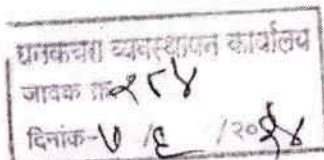 घनकचरा व्यवस्थापन कार्यालय
जावक क्र २८४
दिनांक-७/६/२०१४